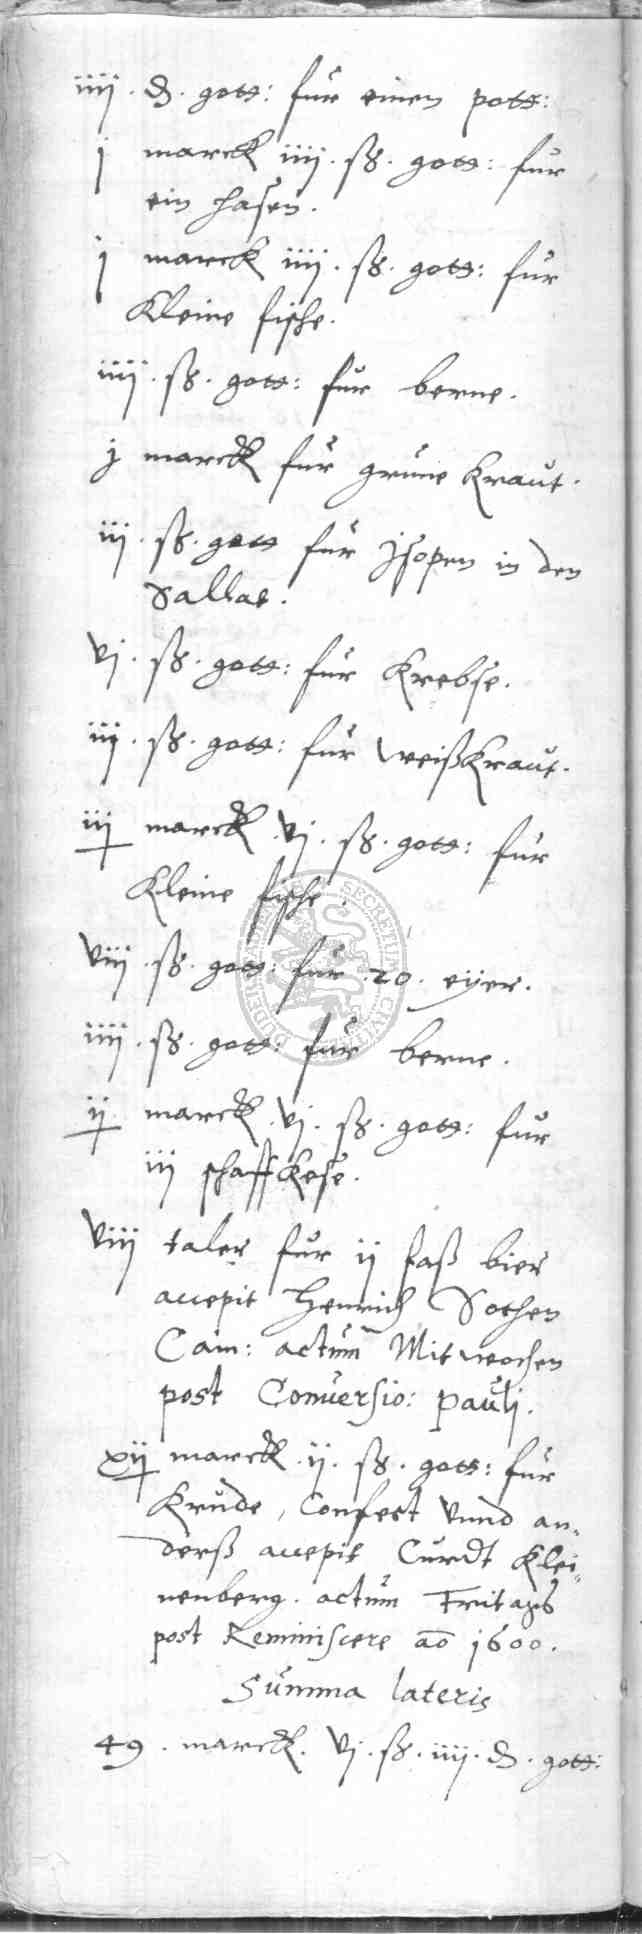 iiij. ₰. gott: fur einen pott:
j marck iiij. ß. gott: fur
ein hasen.
j marck iiij. ß. gott: fur
Kleine fische.
iiij. ß. gott: fur berne.
j marck fur grune Kraut.
iij. ß. gott fur Jsopen in den
Sallat.
vj. ß. gott: fur Krebse.
iij. ß. gott: fur weißKraut.
iij marck vj. ß. gott: fur
Kleine fische.
viij. ß. gott: fur 20. eyer.
iiij. ß. gott: fur berne.
ij marck. vj. ß. gott: fur
iij schaffKese.
viij taler fur ij faß bier
accepit Henrich Sothen
Cam: actum Mitwochen
post Conuersio: Pauli.
xij marck. ij. ß. gott: fur
Krude, Confect vnnd an-
derß accepit Curdt Klei-
nenberg. actum Fritags
post Reminiscere ao 1600.
Summa lateris
49. marck. vj. ß. iiij. ₰. gott:
SECRETUM CIVITATIS